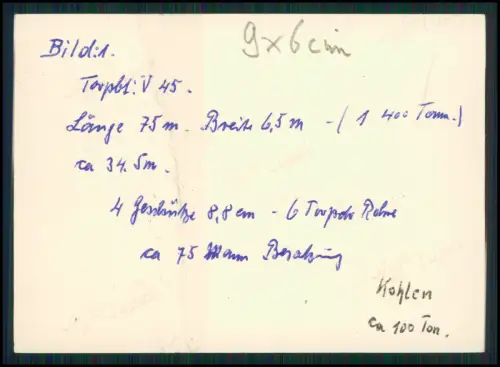 Bild:1.
9x6cm
Torpbt: V 45.
Länge 75 m. Breite 6,5 m - (1 400 Tonn.)
ca 34. Sm.
4 Geschütze 8,8 cm - 6 Torpdo Rohre
ca 75 Mann Besatzung
Kohlen
ca 100 Ton.